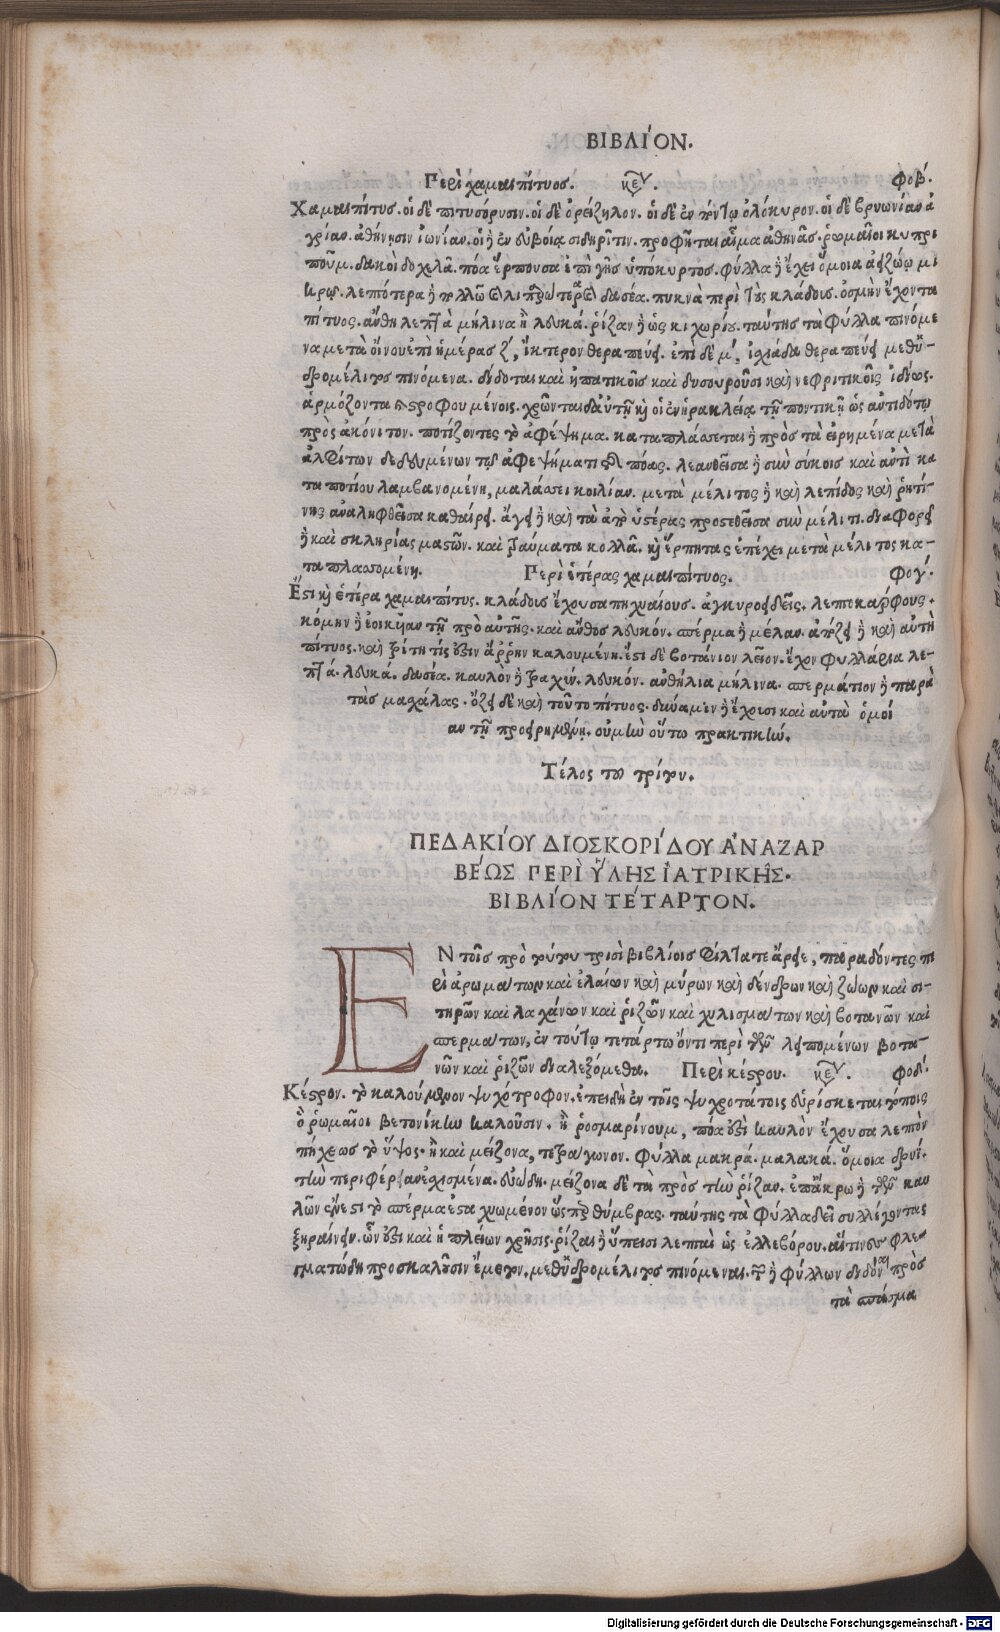 ΒΙΒΛΙΌΝ.
Περὶ χαμαιπίτυος. κεφ. Φοβ΄.
Χαμαιπίτυς. οἱ δὲ πιτυσόρυσιν. οἱ δὲ ὀρείζηλον. οἱ δὲ ἐν πόντῳ ὁλόκυρον. οἱ δὲ βρυωνίαν ἀ
γρίαν. ἀθήνησιν ἰωνίαν. οἱ ἢ ἐν εὐβοίᾳ σιδηρῖτιν. προφῆται αἷμα ἀθηνᾶς. ῥωμαῖοι κυπρι
πούμ. δακοὶ δοχελᾶ. πόα ἕρπουσα ἐπὶ γῆς ὑπόκυρτος. φύλλα ἢ ἔχει ὅμοια ἀειζώῳ μι
κρῷ. λεπότερα ἢ πολλῶ καὶ λιπαρώτερα καὶ δασέα. πυκνὰ περὶ τοὺς κλάδους. ὀσμὴν ἔχοντα
πίτυος. ἄνθη λεπτὰ μήλινα ἢ λευκά. ῥίζαν ἢ ὡς κιχωρίου. ταύτης τὰ φύλλα πινόμε
να μετὰ οἴνου ἐπὶ ἡμέρας ζ΄, ἴκτερον θεραπεύει. ἐπὶ δὲ μ΄, ἰσχιάδα θεραπεύει μεθ᾽ ὑ-
δρομέλιτος πινόμενα. δίδοται καὶ ἡπατικοῖς καὶ δυσουροῦσι καὶ νεφριτικοῖς ἰδίως.
ἁρμόζοντα καὶ στροφουμένοις. χρῶνται δ᾽ αὐτῇ καὶ οἱ ἐν ἡρακλείᾳ τῇ ποντικῇ ὡς ἀντιδότῳ
πρὸς ἀκόνιτον. ποτίζοντες τὸ ἀφέψημα. καταπλάσσεται ἢ πρὸς τὰ εἰρημένα μετὰ
ἀλφίτων δεδευμένων τῷ ἀφεψήματι τῆς πόας. λεανθεῖσα ἢ σὺν σύκοις καὶ ἀντὶ κα
ταποτίου λαμβανομένη, μαλάσσει κοιλίαν. μετὰ μέλιτος ἢ καὶ λεπίδος καὶ ῥητί-
νης ἀναληφθεῖσα καθαίρει. ἄγει ἢ καὶ τὰ ἀπὸ ὑστέρας προστεθεῖσα σὺν μέλιτι. διαφορεῖ
ἢ καὶ σκληρίας μαστῶν. καὶ τραύματα κολλᾶ. καὶ ἕρπητας ἐπέχει μετὰ μέλιτος κα-
ταπλασσομένη. Περὶ ἑτέρας χαμαιπίτυος. Φογ΄.
Ἔστι καὶ ἑτέρα χαμαιπίτυς. κλάδους ἔχουσα πηχυαίους. ἀγκυροειδεῖς. λεπτοκάρφους.
κόμην ἢ ἐοικυῖαν τῇ πρὸ αὐτῆς. καὶ ἄνθος λευκόν. σπέρμα ἢ μέλαν. ἀπόζει ἢ καὶ αὐτὴ
πίτυος. καὶ τρίτη τίς ἐστιν ἄρρην καλουμένη. ἔστι δὲ βοτάνιον λεῖον. ἔχον φυλλάρια λε-
πτά. λευκά. δασέα. καυλὸν ἢ τραχύν. λευκόν. ἀνθήλια μήλινα. σπερμάτιον ἢ παρὰ
τὰς μασχάλας. ὄζει δὲ καὶ τοῦτο πίτυος. δύναμιν ἢ ἔχουσι καὶ αὐταὶ ὁμοί
αν τῇ προειρημένῃ. οὐ μὴν οὕτω πρακτικήν.
Τέλος τοῦ τρίτου.
ΠΕΔΑΚΊΟΥ ΔΙΟΣΚΟΡΊΔΟΥ ἈΝΑΖΑΡ
ΒΈΩΣ ΠΕΡῚ ὝΛΗΣ ἸΑΤΡΙΚΗ͂Σ.
ΒΙΒΛΊΟΝ ΤΈΤΑΡΤΟΝ.
ΕΝ τοῖς πρὸ τούτου τρισὶ βιβλίοις φίλτατε ἄρειε, παραδόντες πε
ρὶ ἀρωμάτων καὶ ἐλαίων καὶ μύρων καὶ δένδρων καὶ ζώων καὶ σι-
τηρῶν καὶ λαχάνων καὶ ῥιζῶν καὶ χυλισμάτων καὶ βοτανῶν καὶ
σπερμάτων, ἐν τούτῳ τετάρτῳ ὄντι περὶ τῶν λειπομένων βοτα-
νῶν καὶ ῥιζῶν διαλεξόμεθα. Περὶ κέστρου. κεφ. Φοδ΄.
Κέστρον. τὸ καλούμενον ψυχότροφον. ἐπειδὴ ἐν τοῖς ψυχροτάτοις εὑρίσκεται τόποις
ὃ ῥωμαῖοι βετονίκην καλοῦσιν. ἢ ῥοσμαρίνουμ, πόα ἐστὶ καυλὸν ἔχουσα λεπτὸν
πήχεως τὸ ὕψος. ἢ καὶ μείζονα, τετράγωνον. φύλλα μακρά. μαλακά. ὅμοια δρυΐ.
τὴν περιφέρειαν ἐσχισμένα. εὐώδη. μείζονα δὲ τὰ πρὸς τὴν ῥίζαν. ἐπ᾽ ἄκρω ἢ τῶν καυ
λῶν ἔνεστι τὸ σπέρμα ἐσταχυωμένον ὥσπερ θύμβρας. ταύτης τὰ φύλλα δεῖ συλλέγοντας
ξηραίνειν. ὧν ἐστι καὶ ἡ πλείων χρῆσις. ῥίζαι ἢ ὕπεισι λεπταὶ ὡς ἐλλεβόρου. αἵτινες φλε-
γματώδη προσκαλοῦσιν ἔμετον. μεθ᾽ ὑδρομέλιτος πινόμεναι. τῶν ἢ φύλλων διδόναι πρὸς
τὰ σπάσμα
Digitalisierung gefördert durch die Deutsche Forschungsgemeinschaft - DFG